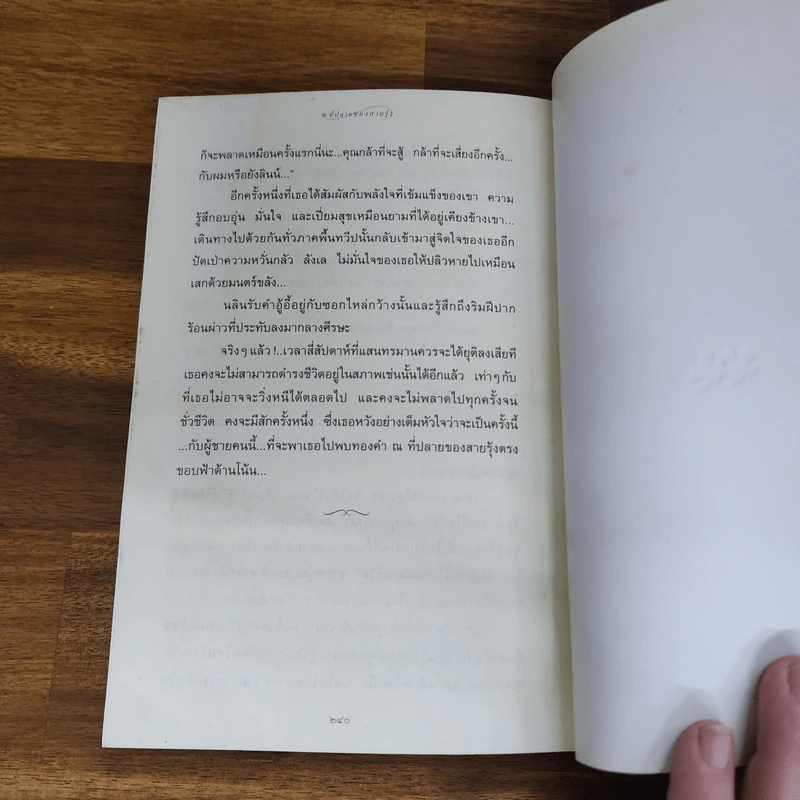 ณ ที่ปลายของสายรุ้ง
ก็จะพลาดเหมือนครั้งแรกนี่นะ...คุณกล้าที่จะสู้ กล้าที่จะเสี่ยงอีกครั้ง...
กับผมหรือยังลินน์...”
อีกครั้งหนึ่งที่เธอได้สัมผัสกับพลังใจที่เข้มแข็งของเขา ความ
รู้สึกอบอุ่น มั่นใจ และเปี่ยมสุขเหมือนยามที่ได้อยู่เคียงข้างเขา...
เดินทางไปด้วยกันทั่วภาคพื้นทวีปนั้นกลับเข้ามาสู่จิตใจของเธออีก
ปัดเป่าความหวั่นกลัว ลังเล ไม่มั่นใจของเธอให้ปลิวหายไปเหมือน
เสกด้วยมนตร์ขลัง...
นลินรับคำอู้อี้อยู่กับซอกไหล่กว้างนั้นและรู้สึกถึงริมฝีปาก
ร้อนผ่าวที่ประทับลงมากลางศีรษะ
จริงๆ แล้ว!..เวลาสี่สัปดาห์ที่แสนทรมานควรจะได้ยุติลงเสียที
เธอคงจะไม่สามารถดำรงชีวิตอยู่ในสภาพเช่นนั้นได้อีกแล้ว เท่าๆ กับ
ที่เธอไม่อาจจะวิ่งหนีได้ตลอดไป และคงจะไม่พลาดไปทุกครั้งจน
ชั่วชีวิต คงจะมีสักครั้งหนึ่ง ซึ่งเธอหวังอย่างเต็มหัวใจว่าจะเป็นครั้งนี้
...กับผู้ชายคนนี้...ที่จะพาเธอไปพบทองคำ ณ ที่ปลายของสายรุ้งตรง
ขอบฟ้าด้านโน้น...
๒๔๐